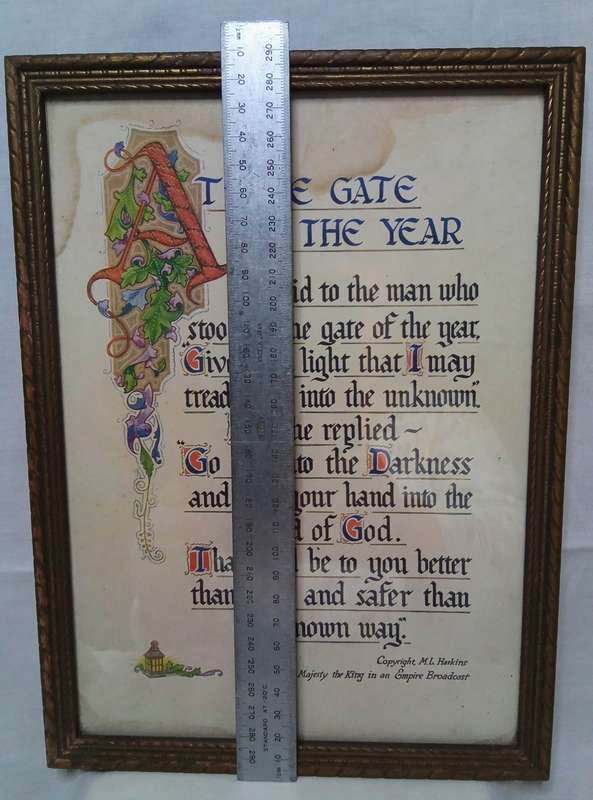 AT E GATE
THE YEAR
id to the man who
stoo he gate of the year,
"Giv light that I may
tread into the unknown"
he replied ~
"Go to the Darkness
and your hand into the
d of God.
Tha be to you better
than and safer than
nown way."
Copyright, M.L. Harkins
Majesty the King in an Empire Broadcast
10 20 30 40 50 60 70 80 90 100 110 120 130 140 150 160 170 180 190 200 210 220 230 240 250 260 270 280 290
290 280 270 260 250 240 230 220 210 200 190 180 170 160 150 140 130 120 110 100 90 80 70 60 50 40 30 20 10
STANDARD AT 20°C